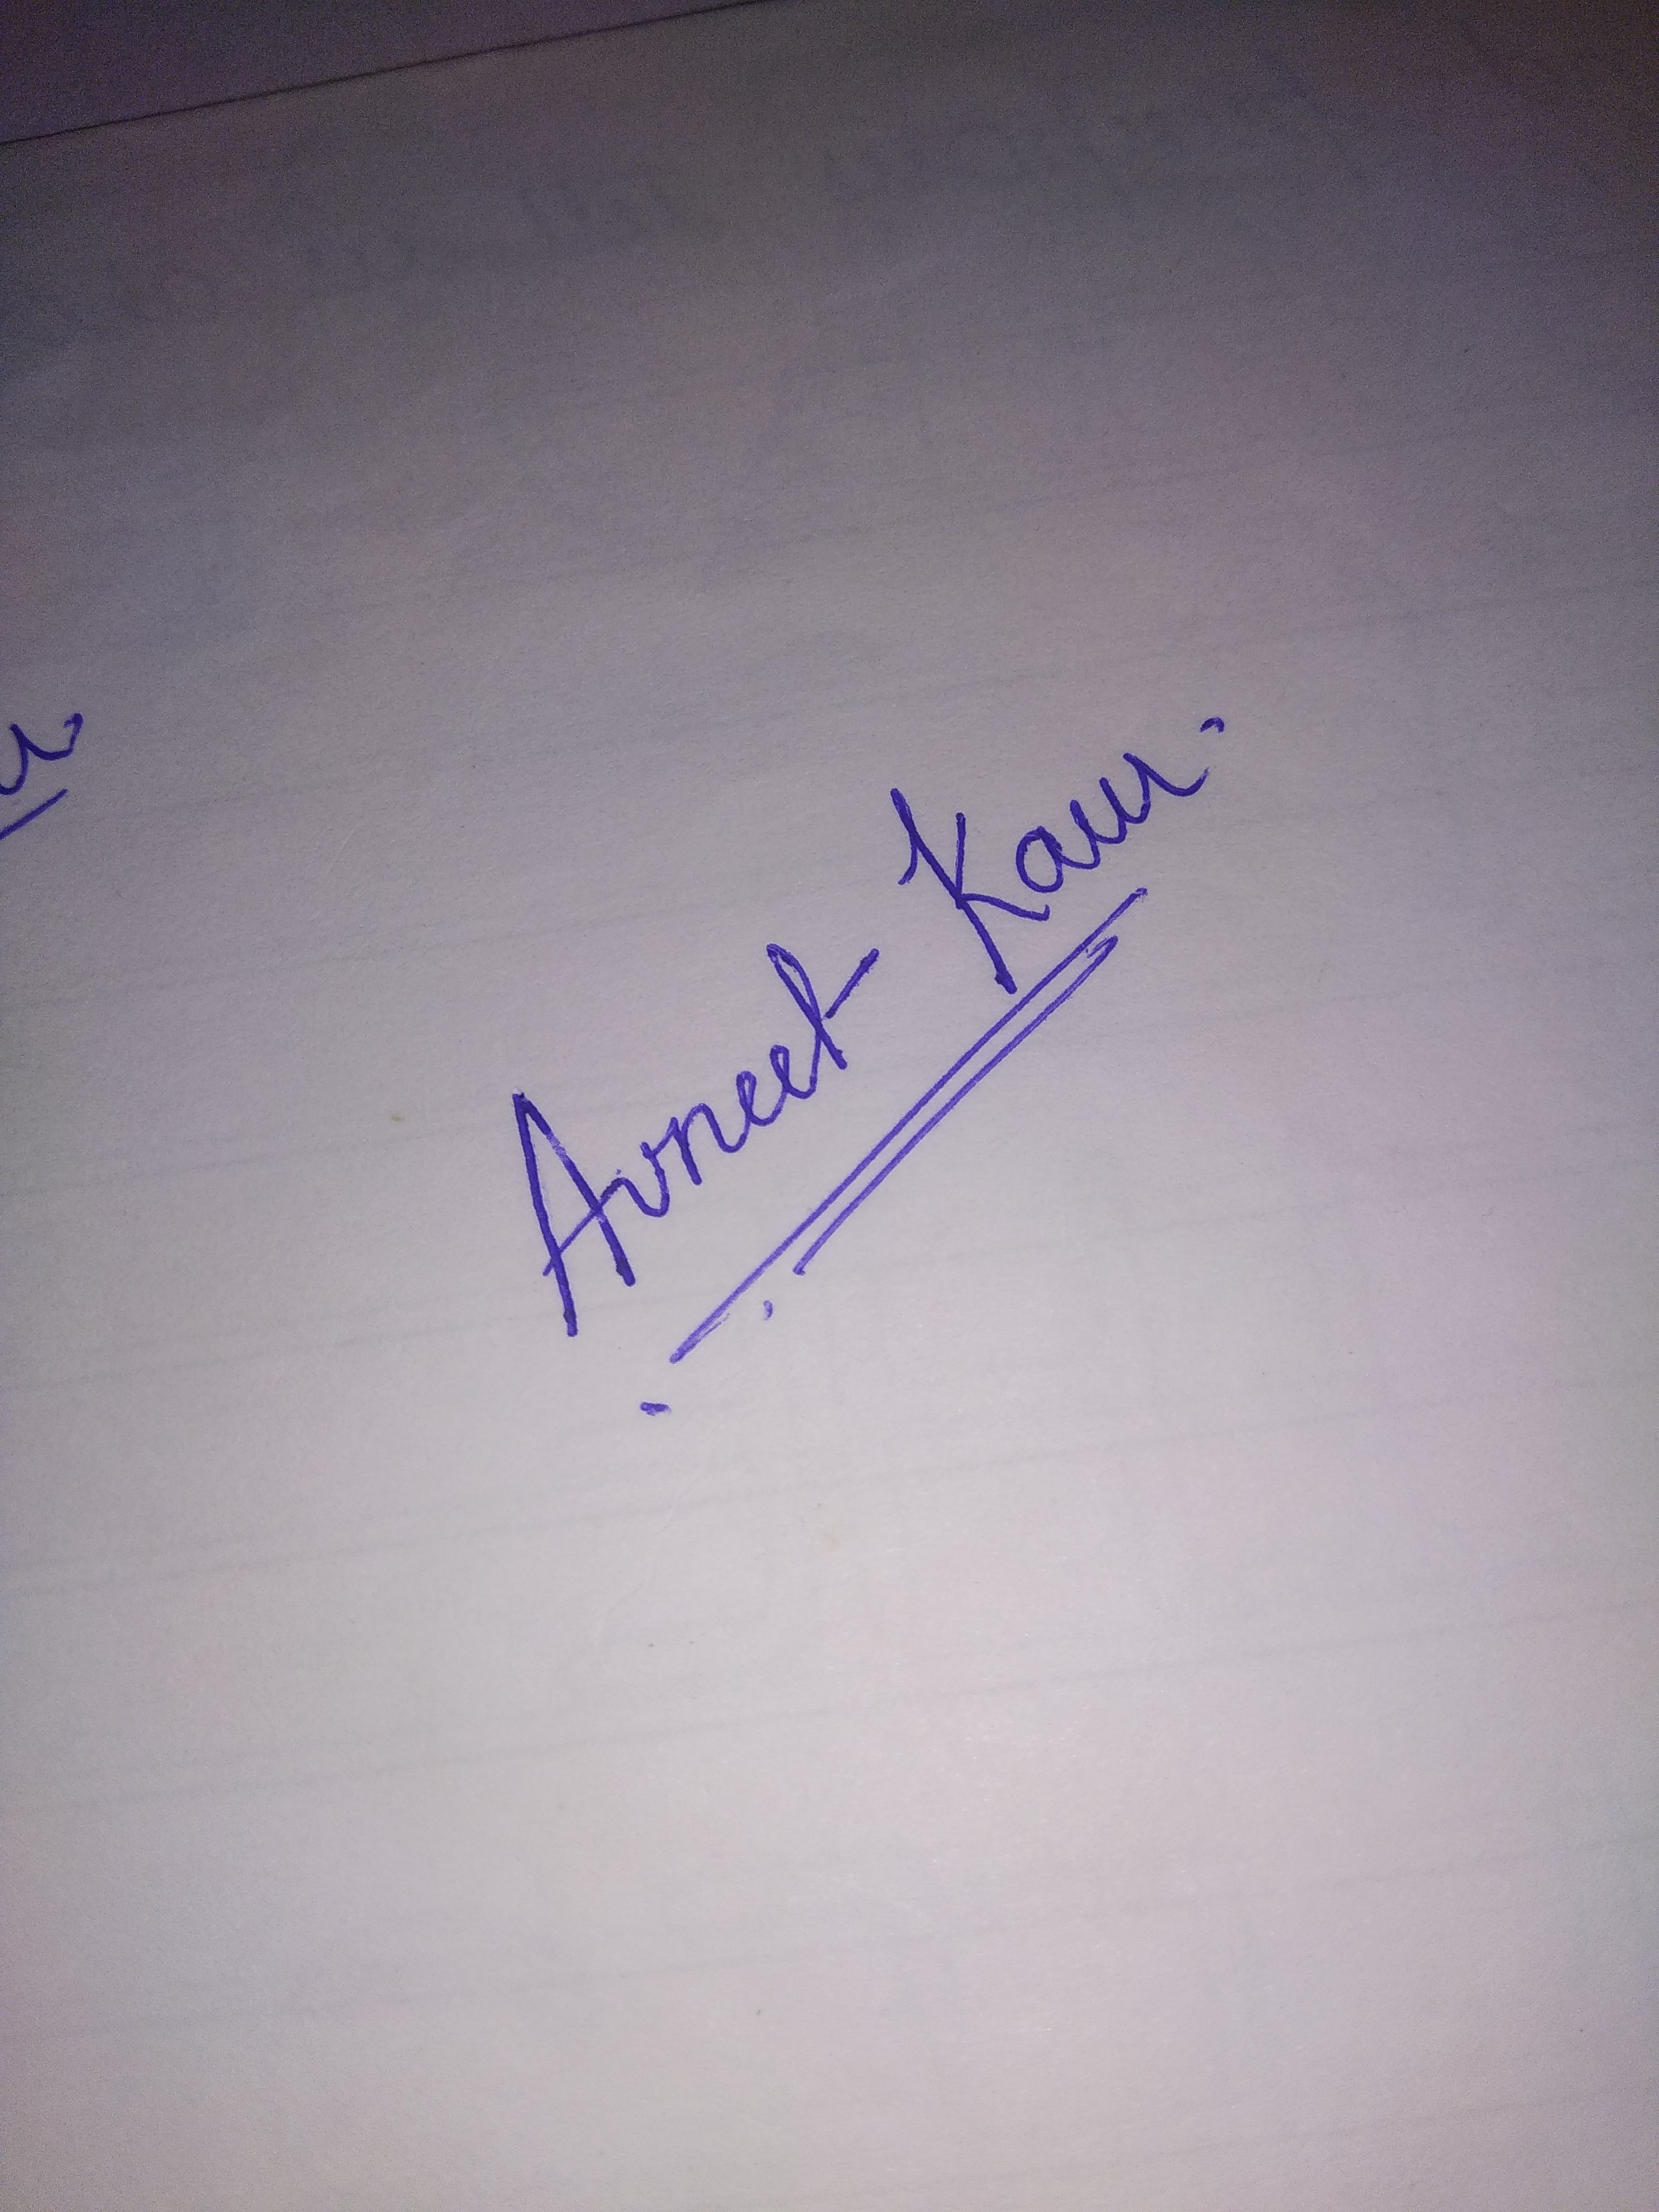 Avneet Kaur.